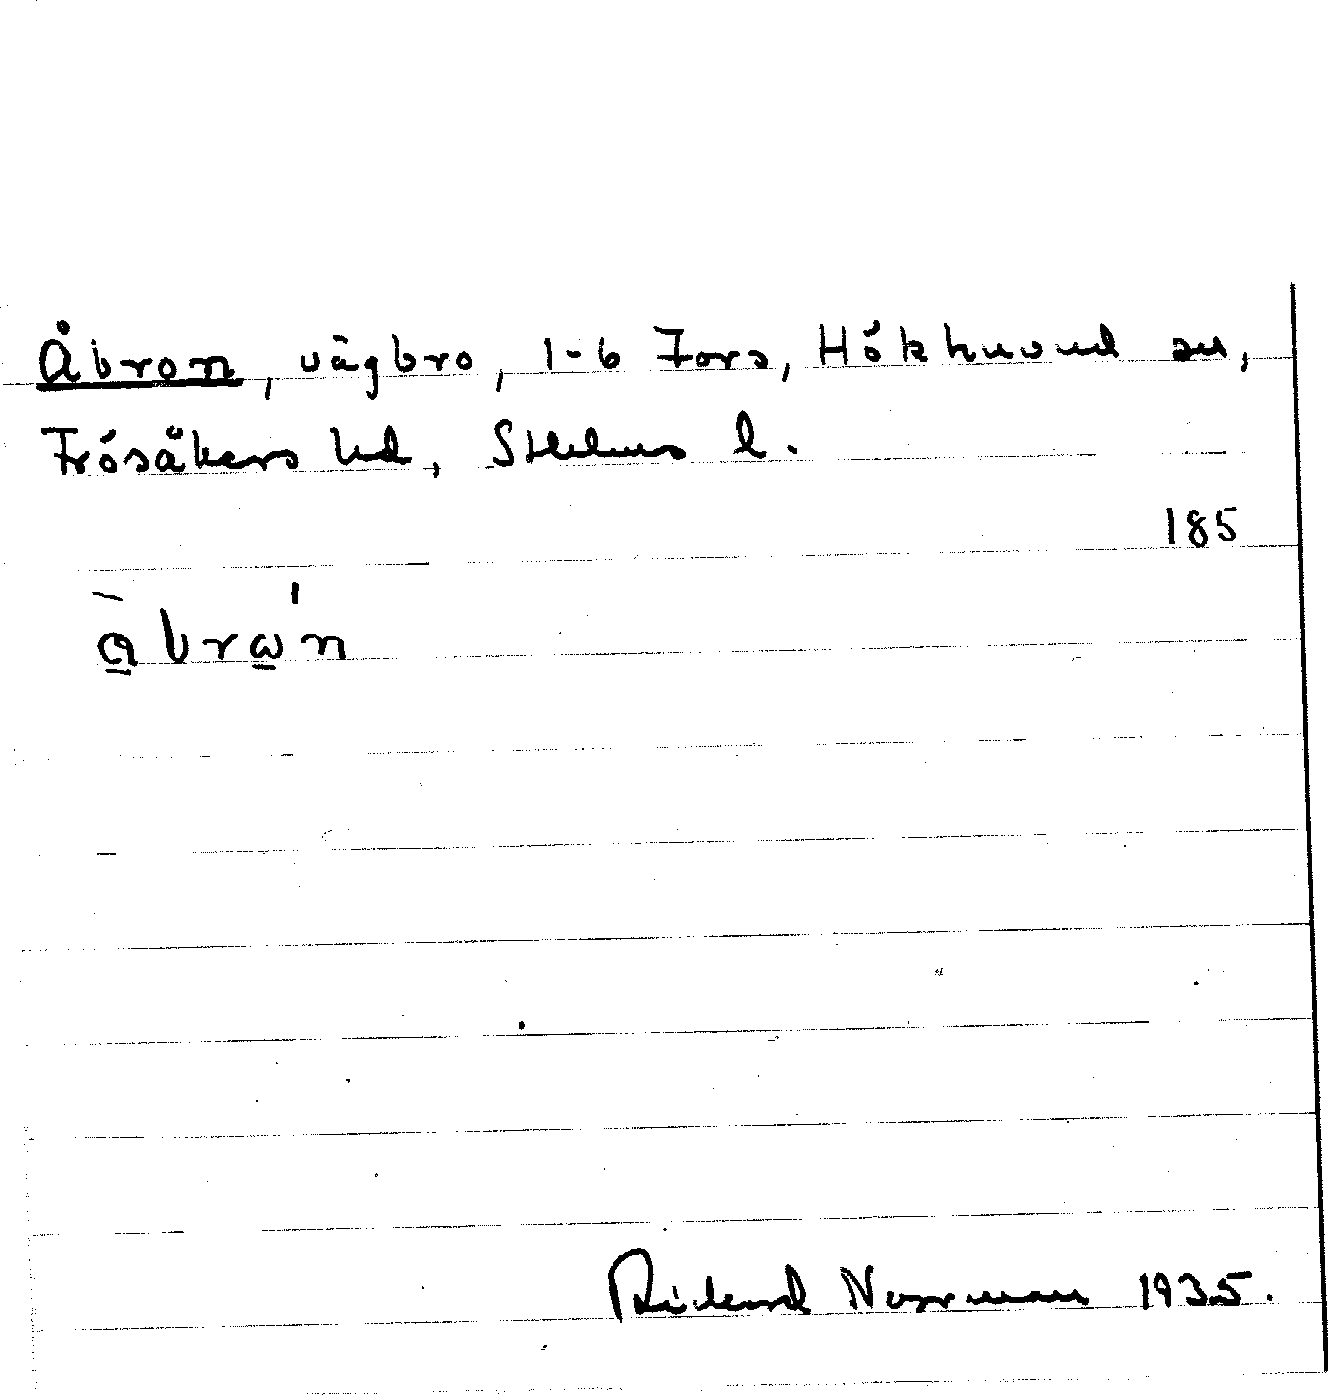 Åbron, vägbro, 1-6 Fors, Hökhuvud sn,
Frösåkers hd, Sthlms l.
185
åbrω´n
Rickard Norrman 1935.